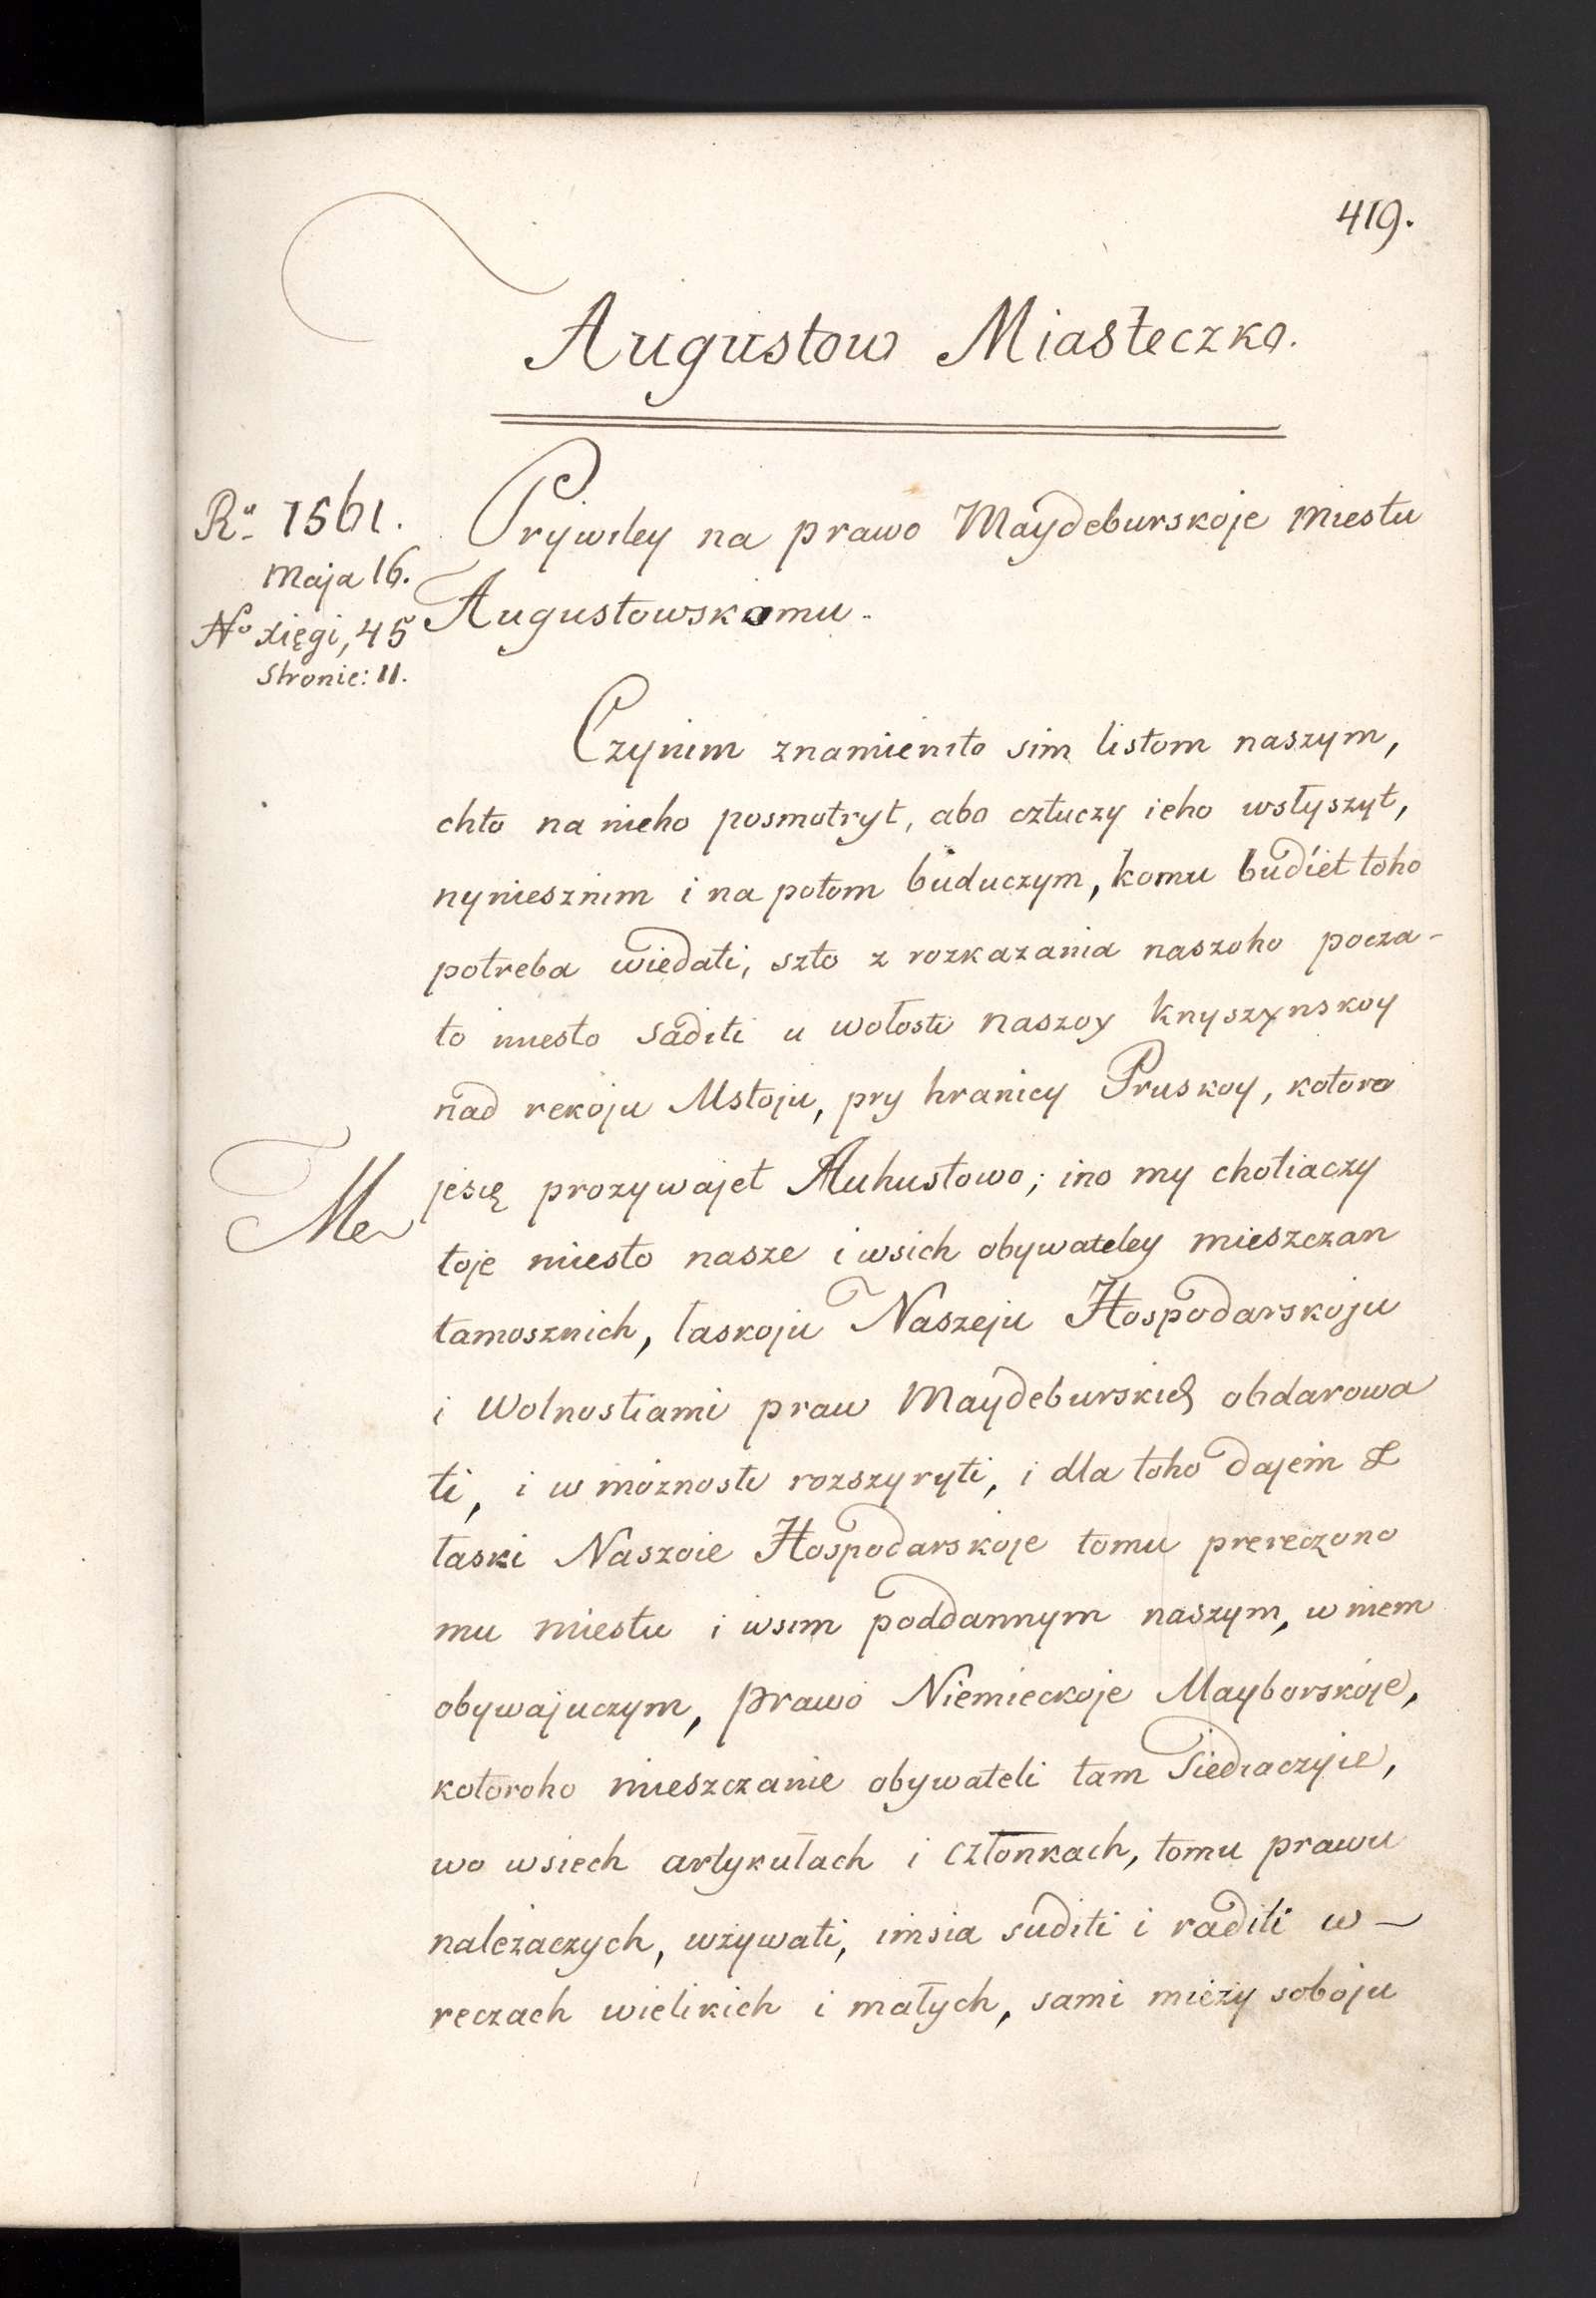 419.
Augustow Miasteczko.
Ru 1561.
Maja 16.
No xięgi, 45
Stronie: 11.
Prywiley na prawo Maydeburskoje miestu
Augustowskomu.
Czynim znamienito sim listom naszym,
chto na nieho posmotryt, abo cztuczy ieho wsłyszyt,
nyniesznim i na potom buduczym, komu budiet toho
potreba wiedati, szto z rozkazania naszoho pocza-
to miesto saditi u wołosti naszoy Knyszynskoy
nad rekoju Mstoju, pry hranicy Pruskoy, kotoro
jesię prozywajet Auhustowo; ino my chotiaczy
Me
toje miesto nasze i wsich obywateley mieszczan
tamosznich, łaskoju Naszeju Hospodarskoju
i Wolnostiami praw Maydeburskich obdarowa
ti, i w możnosti rozszyryti, i dla toho dajem Z
łaski Naszoie Hospodarskoje tomu prereczono
mu miestu i wsim poddannym naszym, w niem
obywajuczym, prawo Niemieckoje Mayborskoje,
kotoroho mieszczanie obywateli tam siediaczyie,
wo wsiech artykułach i członkach, tomu prawu
należaczych, wżywati, imsia suditi i raditi w
reczach wielikich i małych, sami mieży soboju